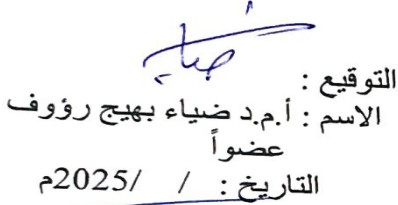 التوقيع :
الاسم : أ.م.د ضياء بهيج رؤوف
عضواً
التاريخ : / /2025م